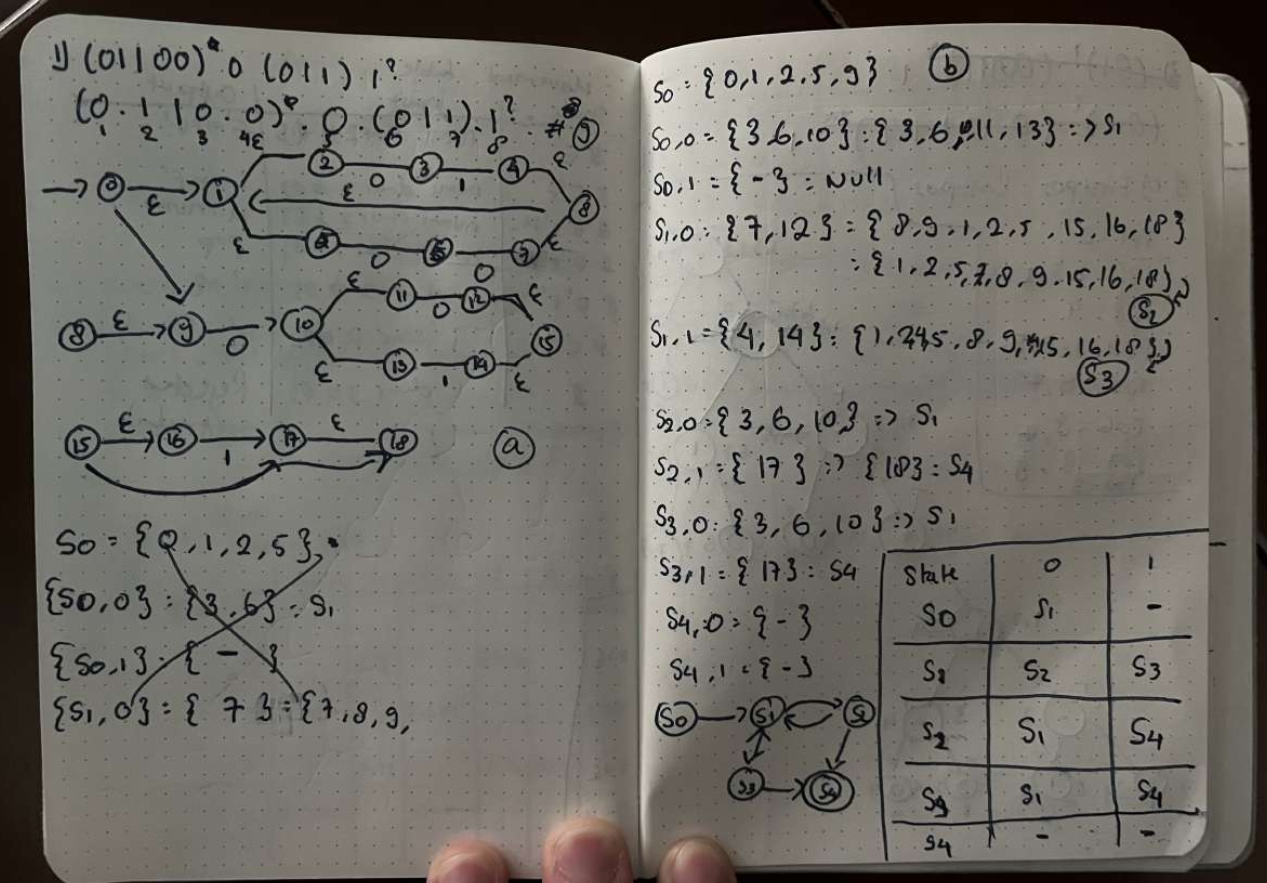 1) (01|00)* 0 (0|1) 1?
(0.1|0.0)*.0.(0|1).1?.#
1 2 3 4 5 6 7 8 9
ε 2 0 3 1 4 ε
0 ε 1 ε 8
ε 5 0 6 0 7 ε
ε 11 0 12 ε
8 ε 9 0 10 15
ε 13 1 14 ε
15 ε 16 1 17 ε 18
a
S0 = {0,1,2,5}
{S0,0} = {3,6} = S1
{S0,1} = { - }
{S1,0} = { 7 } = {7,8,9,
b
S0 = {0,1,2,5,9}
S0,0 = {3,6,10} = {3,6,10,11,13} => S1
S0,1 = { - } = NUll
S1,0 = {7,12} = {8,9,1,2,5,15,16,18}
= {1,2,5,7,8,9,15,16,18}
S2
S1,1 = {4,14} = {1,2,4,5,8,9,15,16,18}
S3
S2,0 = {3,6,10} => S1
S2,1 = {17} => {18} = S4
S3,0 = {3,6,10} => S1
S3,1 = {17} = S4
S4,0 = { - }
S4,1 = { - }
S0 S1 S2
S3 S4
State 0 1
S0 S1 -
S1 S2 S3
S2 S1 S4
S3 S1 S4
S4 - -